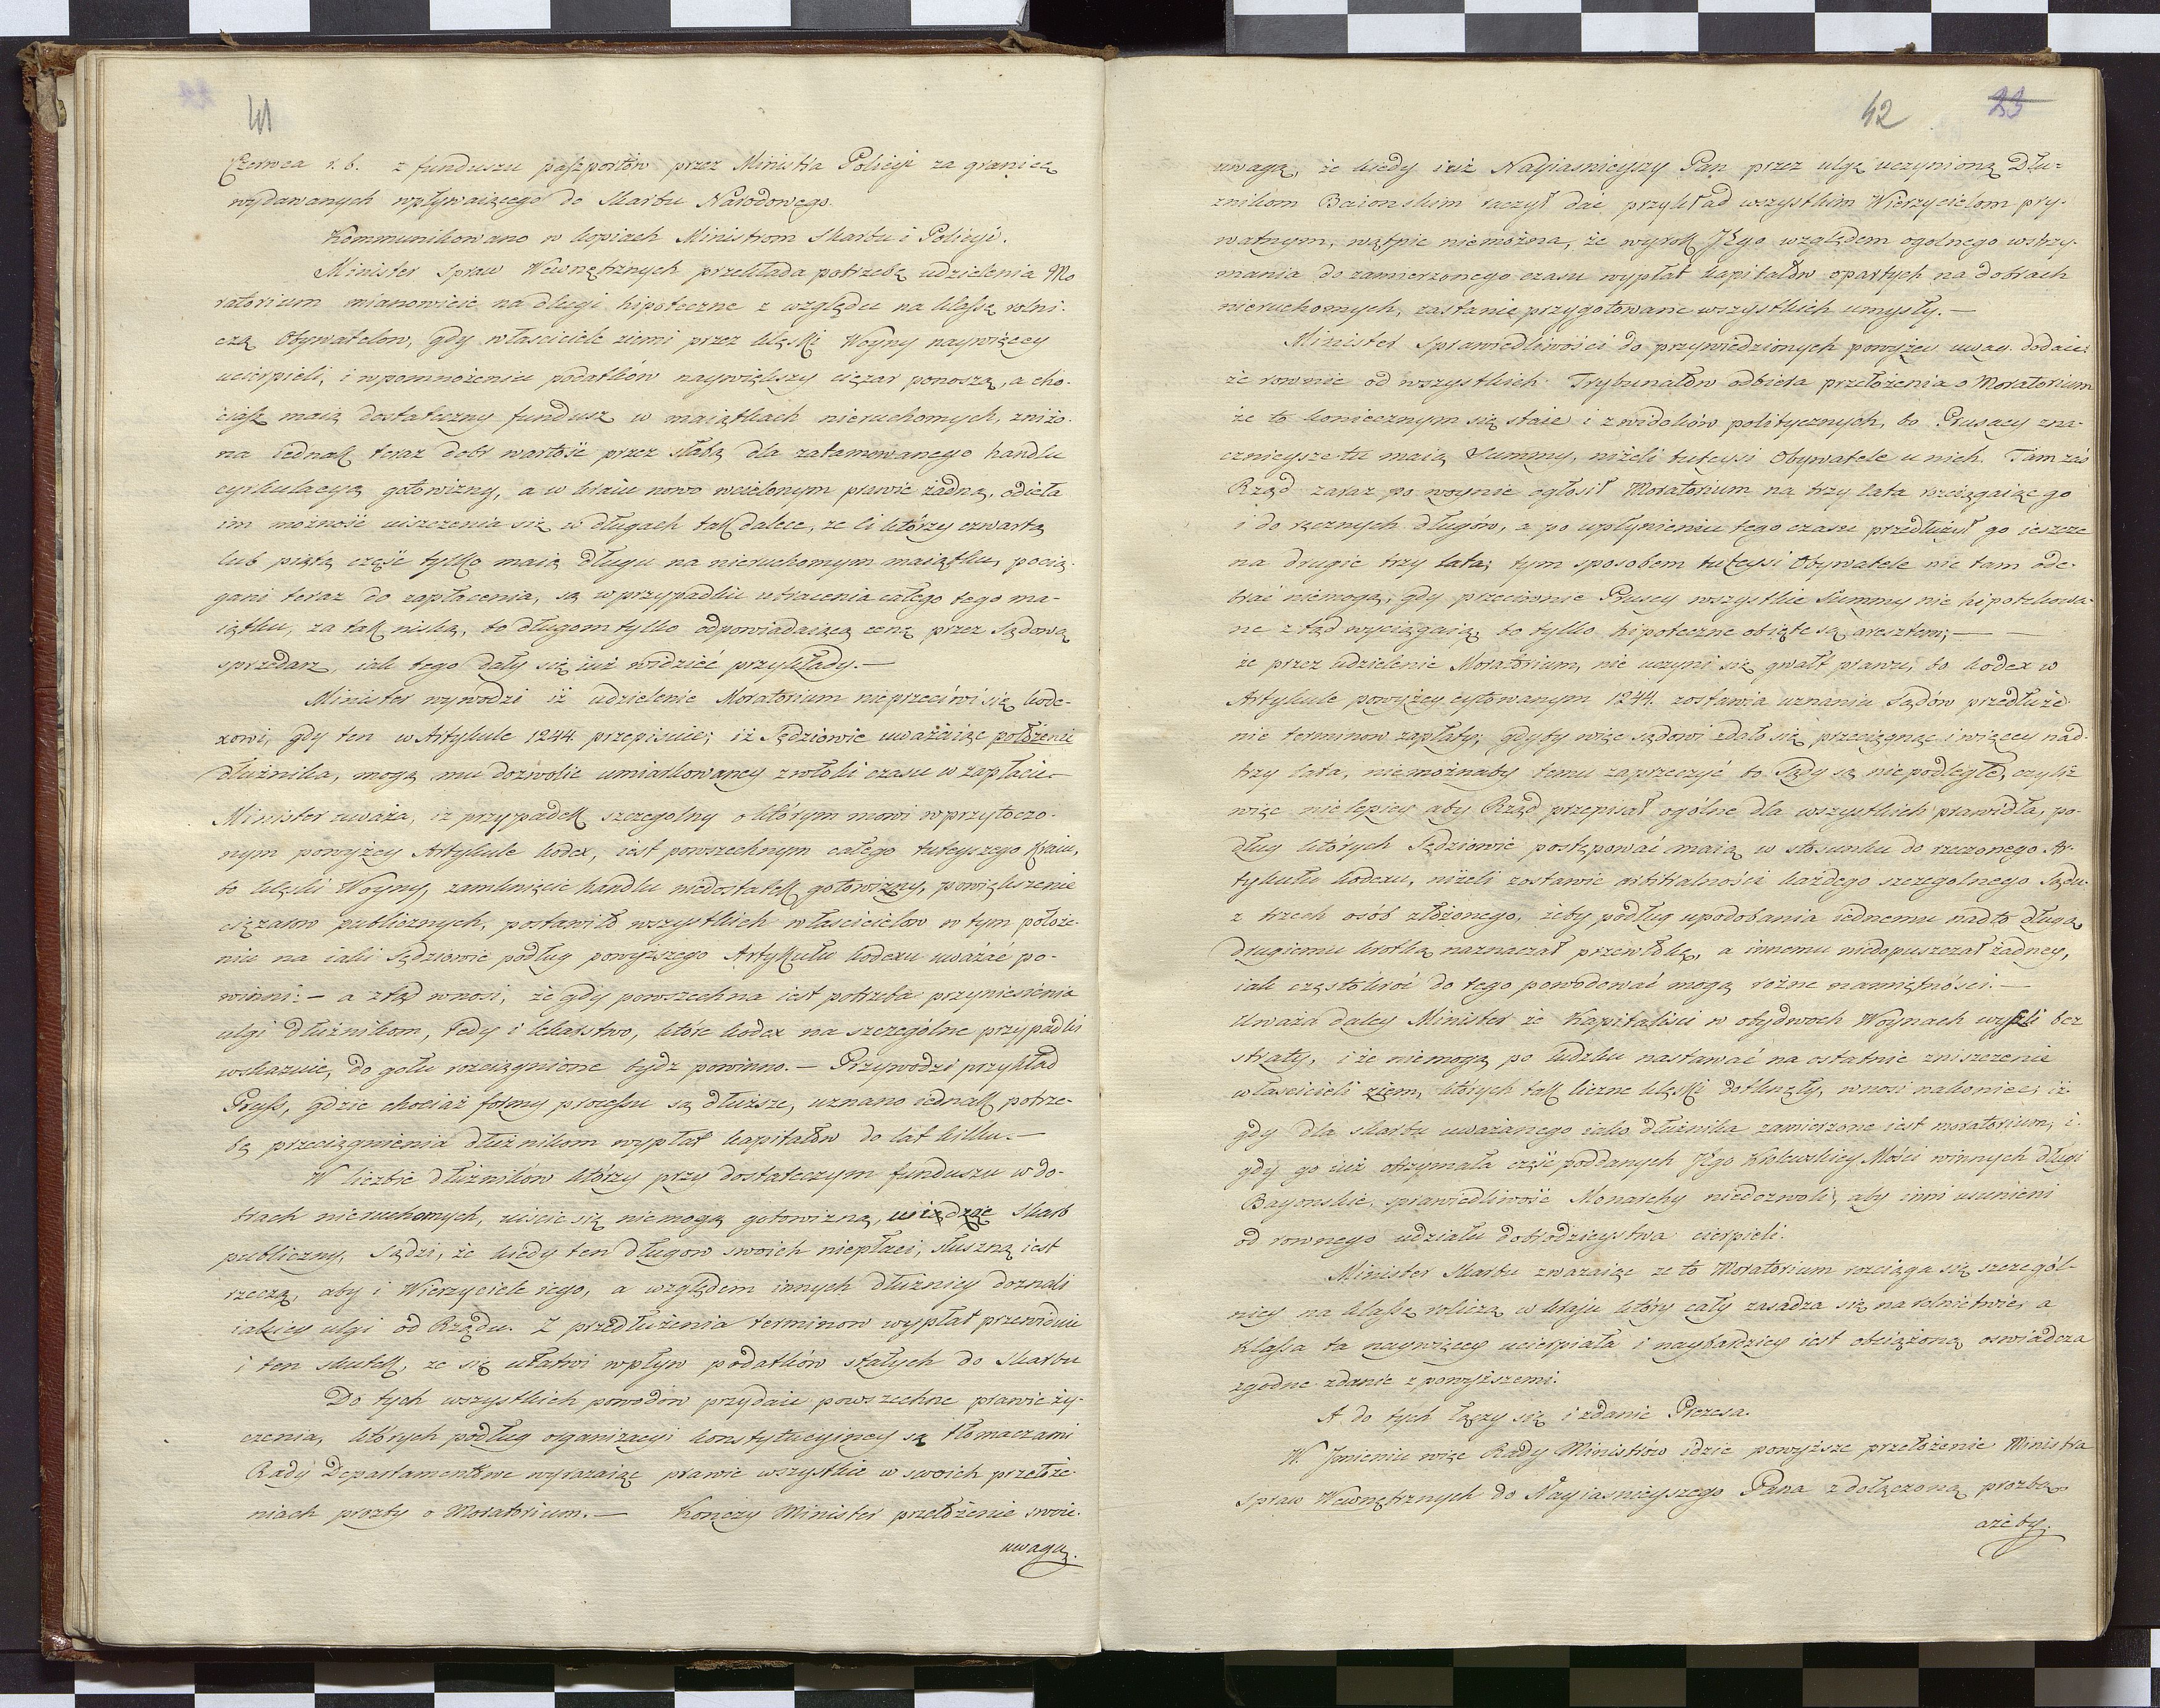 41
Czerwca r. b. z funduszu paszportów przez Ministra Policyi za granicę
wydawanych wpływaiącego do Skarbu Narodowego.
Kommunikowano w kopiach Ministrom Skarbu i Policyi.
Minister Spraw Wewnętrznych przekłada potrzebę udzielenia Mo
ratorium mianowicie na długi hipoteczne z względu na klassę rolni-
czą Obywatelow, gdy właściciele ziemi przez klęski Woyny naywięcey
ucierpieli, i w pomnożeniu podatków naywiększy ciężar ponoszą, a cho-
ciasz maią dostateczny fundusz w maiątkach nieruchomych, zniżo-
na iednak teraz dobr wartość przez słabą dla zatamowanego handlu
cyrkulacyą gotowizny, a w kraiu nowo wcielonym prawie żadną, odięła
im możność uiszczenia się w długach tak dalece, ze ci którzy czwartą
lub piątą część tylko maią długu na nieruchomym maiątku, pocią-
gani teraz do zapłacenia, są w przypadku utracenia całego tego ma-
iątku, za tak niską, bo długom tylko odpowiadaiącą cenę przez Sądową
sprzedarz, iak tego dały się iuż widzieć przykłady.—
Minister wywodzi iż udzielenie Moratorium nieprzeciwi się kode-
xowi, gdy ten w Artykule 1244. przepisuie; iż Sędziowie uważaiąc położenie
dłużnika, mogą mu dozwolić umiarkowaney zwłoki czasu w zapłacie.—
Minister uważa, iż przypadek szczegolny o którym mowi w przytoczo-
nym powyżey Artykule kodex, iest powszechnym całego tuteyszego Kraiu,
bo klęski Woyny, zamknięcie handlu niedostatek gotowizny, powiększenie
ciężarow publicznych, postawiło wszystkich właścicielow w tym położe-
niu na iaki Sędziowie podług powyższego Artykułu kodexu uważać po-
winni:— a ztąd wnosi, że gdy powszechna iest potrzeba przyniesienia
ulgi dłużnikom, tedy i lekarstwo, które kodex na szczególne przypadki
wskazuie, do gołu rozciągnione bydz powinno.— Przywodzi przykład
Pruss, gdzie chociaż formy processu są dłuższe, uznano iednak potrze-
bę przeciągnienia dłużnikom wypłat kapitałow do lat kilku.—
W liczbie dłużników którzy przy dostateczym funduszu w do-
brach nieruchomych, uiścić się niemogą gotowizną, widząc Skarb
publiczny, Sądzi, że kiedy ten długow swoich niepłaci, słuszną iest
rzeczą, aby i Wierzyciele iego, a względem innych dłużnicy doznali
iakiey ulgi od Rządu. Z przedłużenia terminow wypłat przewiduie
i ten skutek, ze się ułatwi wpływ podatków stałych do Skarbu
Do tych wszystkich powodów przydaie powszechne prawie ży-
czenia, których podług organizacyi konstytucyiney są tłomaczami
Rady Departamentowe wyrażaiąc prawie wszystkie w swoich przełoże-
niach prozby o Moratorium.— Kończy Minister przełożenie swoie.
uwagą.
42 23
uwagą, że kiedy iuż Nayiasnieyszy Pan przez ulgę uczynioną Dłu-
żnikom Baionskim raczył dać przykład wszystkim Wierzycielom pry-
watnym, wątpić niemożna, że wyrok Jego względem ogolnego wstrzy-
mania do zamierzonego czasu wypłat kapitałów opartych na dobrach
nieruchomych, zastanie przygotowane wszystkich umysły.—
Minister Sprawiedliwości do przywiedzionych powyżey uwag dodaie:
że rownie od wszystkich Trybunałów odbiera przełożenia o Moratorium
że to koniecznym się staie i z widoków politycznych, bo Prusacy zna-
cznieysze tu maią Summy, niżeli tuteysi Obywatele u nich. Tam zaś
Rząd zaraz po woynie ogłosił Moratorium na trzy lata rozciągaiąc go
i do ręcznych długów, a po upłynieniu tego czasu przedłużył go ieszcze
na drugie trzy lata; tym sposobem tuteysi Obywatele nic tam ode-
brać niemogą, gdy przeciwnie Prusey wszystkie Summy nie hipotekowa-
ne ztąd wyciągaią, bo tylko hipoteczne obięte są aresztem;— —
że przez udzielenie Moratorium, nie uczyni się gwałt prawu, bo kodex w
Artykule powyżey cytowanym 1244. zostawia uznaniu Sądów przedłuże-
nie terminow zapłaty; gdyby więc sądowi zdało się przeciągnąć i więcey nad
trzy lata, niemożnaby temu zaprzeczyć bo Sądy są niepodległe, czyliż
więc nie lepiey aby Rząd przepisał ogólne dla wszystkich prawidła, po-
dług których Sędziowie postępować maią w stosunku do rzeczonego Ar-
tykułu kodexu, niżeli zostawić arbitralności każdego szczegolnego Sądu
z trzech osób złożonego, żeby podług upodobania iednemu nadto długą
drugiemu krotką naznaczał przewłokę, a innemu niedopuszczał żadney,
iak częstokroć do tego powodować mogą rożne namiętności.—
Uważa daley Minister że Kapitaliści w obydwoch Woynach wyszli bez
straty, i że niemogą po ludzku nastawać na ostatnie zniszczenie
właścicieli ziem, których tak liczne klęski dotknęły, wnosi nakoniec; iż
gdy dla Skarbu uważanego iako dłużnika zamierzone iest moratorium, i
gdy go iuż otrzymała część poddanych Jego Krolewskiey Mości winnych długi
Bayonskie, sprawiedliwość Monarchy niedozwoli, aby inni usunieni
od rownego udziału dobrodzieystwa cierpieli.
Minister Skarbu zważaiąc ze to Moratorium rozciąga się szczegól-
niey na klassę roliczą w kraju który cały zasadza się na rolnictwie, a
Klassa ta naywięcey ucierpiała i naybardziey iest obciążoną oswiadcza
zgodne zdanie z powyższemi.
A do tych łączy się i zdanie Prezesa.
W Jmieniu więc Rady Ministrów idzie powyższe przełożenie Ministra
Spraw Wewnętrznych do Nayiasnieyszego Pana z dołączoną prozbą
ażeby.